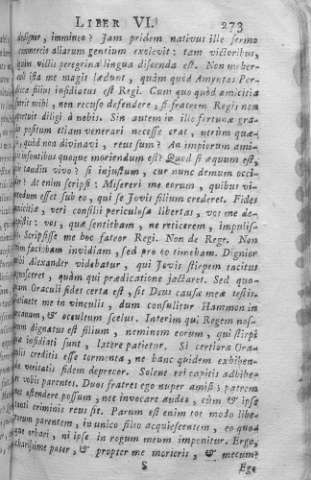 LIBER VI. 273
dedignor, immineo? Jam pridem nativus ille sermo
commercio aliarum gentium exolevit: tam victoribus,
quàm victis peregrina lingua discenda est. Non mehercu-
ista me magis lædunt, quàm quòd Amyntas Per-
diccæ filius insidiatus est Regi. Cum quo quòd amicitia
mihi, non recuso defendere, si fratrem Regis non
oportuit diligi à nobis. Sin autem in illo fortunæ gra-
positum etiam venerari necesse erat, utrùm quæ-
quòd non divinavi, reus sum? An impiorum ami-
insontibus quoque moriendum est? Quod si æquum est,
tamdiu vivo? si injustum, cur nunc demum occi-
At enim scripsi: Misereri me eorum, quibus vi-
esset sub eo, qui se Jovis filium crederet. Fides
amicitiæ, veri consilii periculosa libertas, vos me de-
vos, quæ sentiebam, ne reticerem, impulis-
Scripsisse me hoc fateor Regi. Non de Rege. Non
faciebam invidiam, sed pro eo timebam. Dignior
Alexander videbatur, qui Jovis stirpem tacitus
agnosceret, quàm qui prædicatione jactaret. Sed quo-
Oraculi fides certa est, sit Deus causæ meæ testis.
me in vinculis, dum consulitur Hammon in
arcanum, & occultum scelus. Interim qui Regem nos-
dignatus est filium, neminem eorum, qui stirpi
insidiati sunt, latere patietur. Si certiora Ora-
culis creditis esse tormenta, ne hanc quidem exhiben-
veritatis fidem deprecor. Solent rei capitis adhibe-
vobis parentes. Duos fratres ego nuper amisi: patrem
ostendere possum, nec invocare audeo, cùm & ipse
tanti criminis reus sit. Parum est enim tot modo libe-
parentem, in unico filio acquiescentem, eo quo-
orbari, ni ipse in rogum meum imponitur. Ergo,
charissime pater, & propter me morieris, & mecum?
S Ego